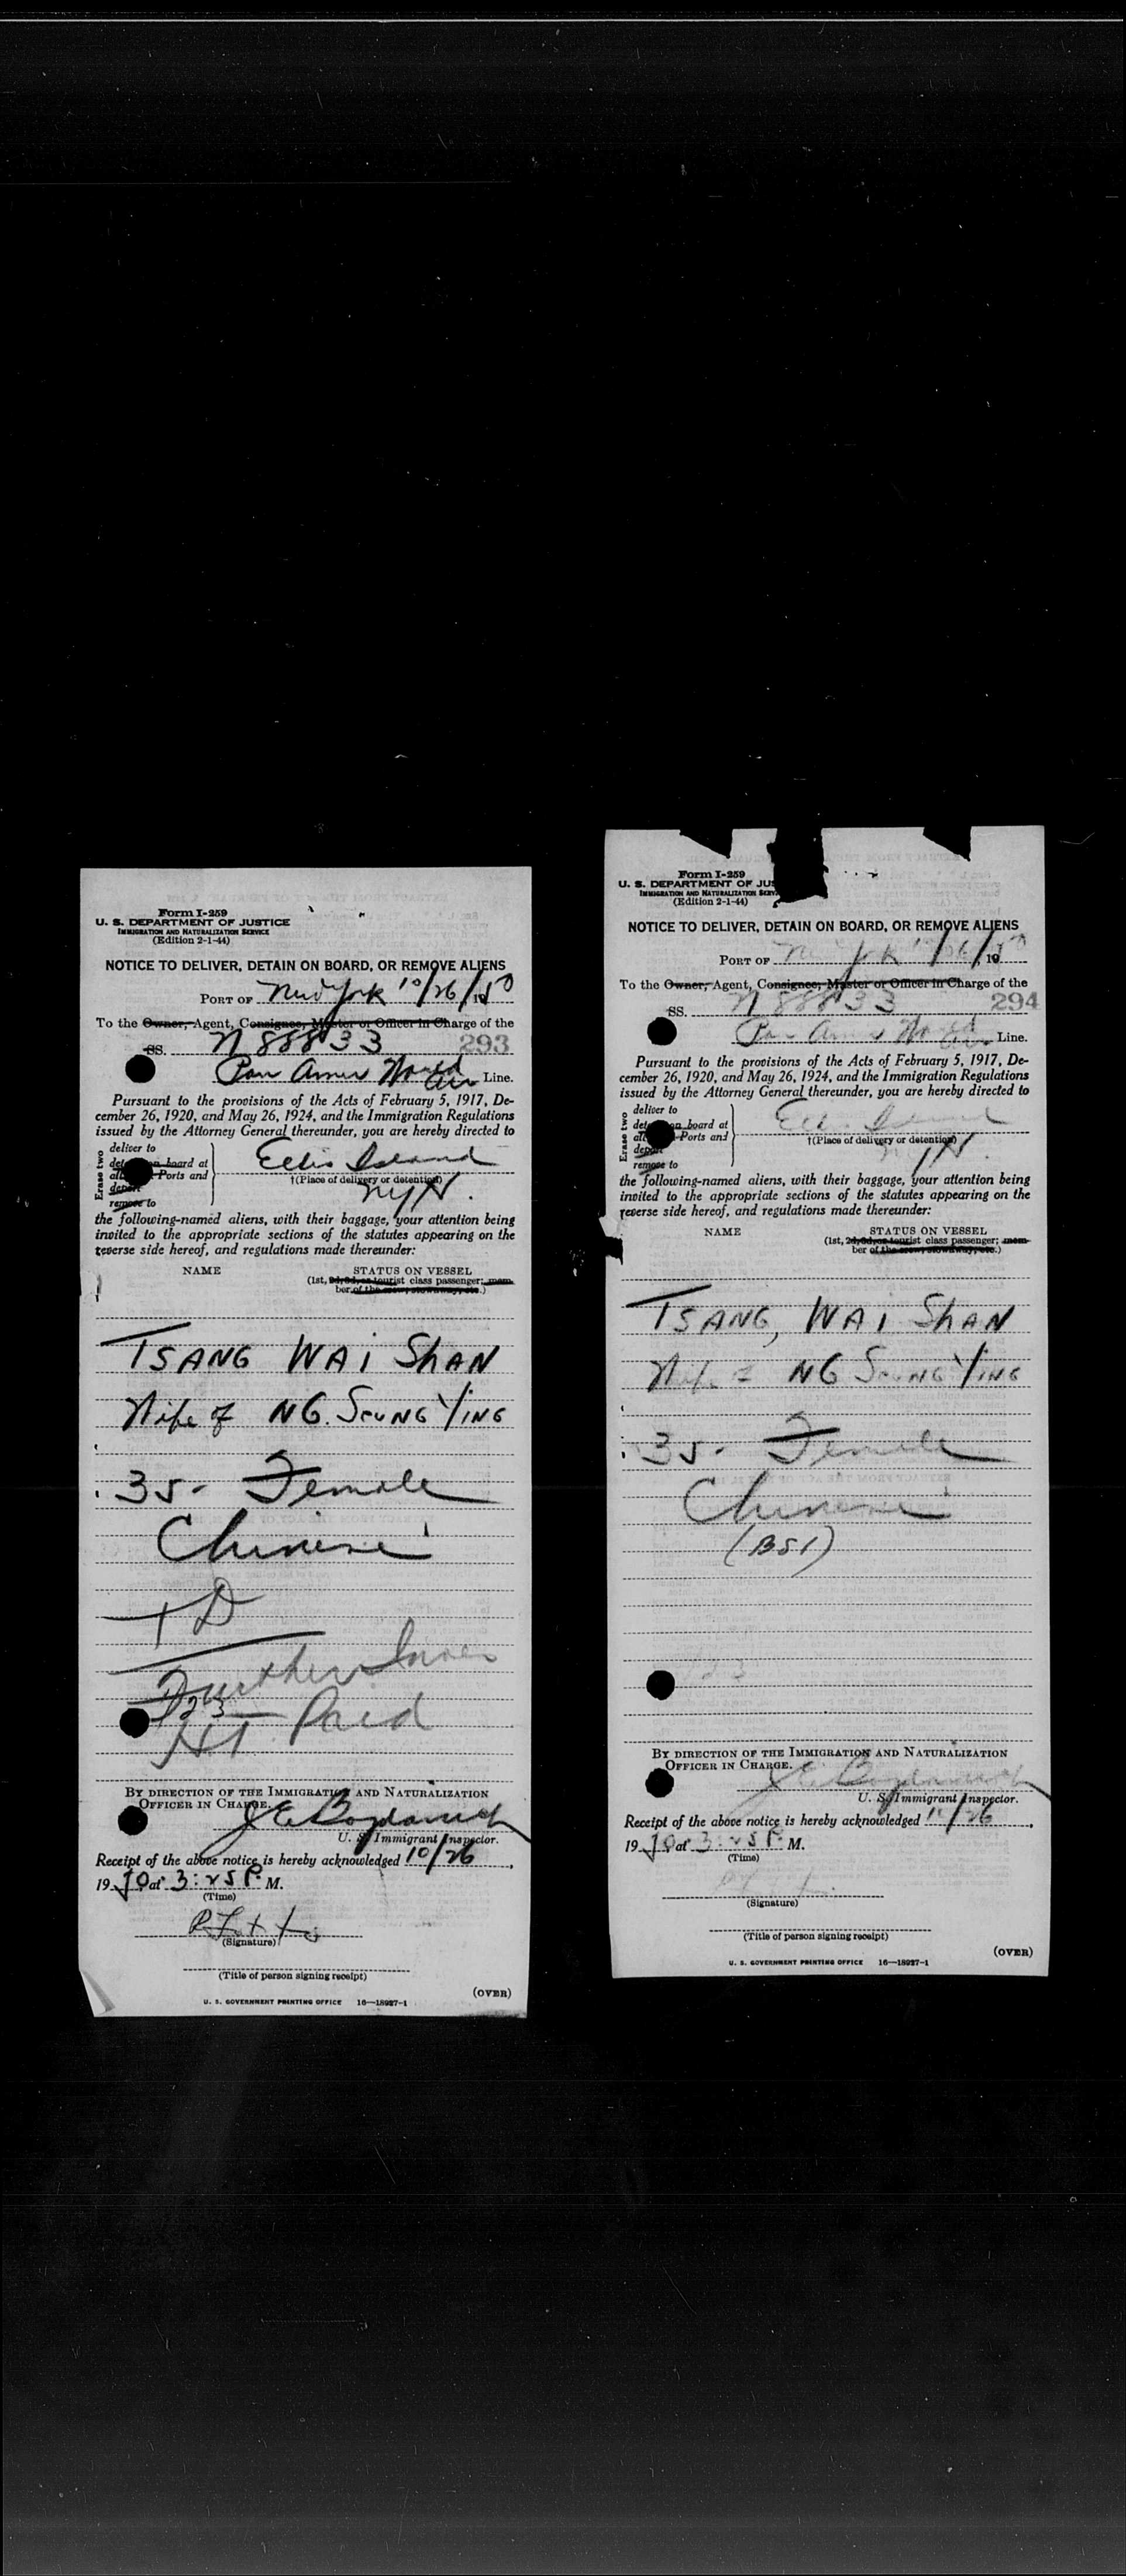 Form I-259
U. S. DEPARTMENT OF JUSTICE
IMMIGRATION AND NATURALIZATION SERVICE
(Edition 2-1-44)
NOTICE TO DELIVER, DETAIN ON BOARD, OR REMOVE ALIENS
PORT OF New York 10/26/1950
To the Owner, Agent, Consignee, Master or Officer in Charge of the
SS. N 88833 293
Pan Amer World Air Line.
Pursuant to the provisions of the Acts of February 5, 1917, De-
cember 26, 1920, and May 26, 1924, and the Immigration Regulations
issued by the Attorney General thereunder, you are hereby directed to
Erase two
deliver to
board at
Ports and
remove to
Ellis Island
†(Place of delivery or detention)
NYH.
the following-named aliens, with their baggage, your attention being
invited to the appropriate sections of the statutes appearing on the
reverse side hereof, and regulations made thereunder:
NAME STATUS ON VESSEL
(1st, 2d, 3d, or tourist class passenger; mem-
ber of the crew, stowaway, etc.)
TSANG WAI SHAN
Wife of NG. SEUNG YING
35 - Female
Chinese
TD
Further
123
HT Paid
BY DIRECTION OF THE IMMIGRATION AND NATURALIZATION
OFFICER IN CHARGE.
U. S. Immigrant Inspector.
Receipt of the above notice is hereby acknowledged 10/26,
1950 at 3:25 P. M.
(Time)
(Signature)
(Title of person signing receipt)
(OVER)
U. S. GOVERNMENT PRINTING OFFICE 16—18927-1
Form I-259
U. S. DEPARTMENT OF JUS
IMMIGRATION AND NATURALIZATION SERV
(Edition 2-1-44)
NOTICE TO DELIVER, DETAIN ON BOARD, OR REMOVE ALIENS
PORT OF New York 10/26/1950
To the Owner, Agent, Consignee, Master or Officer in Charge of the
SS. N 88833 294
Pan Amer World Air Line.
Pursuant to the provisions of the Acts of February 5, 1917, De-
cember 26, 1920, and May 26, 1924, and the Immigration Regulations
issued by the Attorney General thereunder, you are hereby directed to
Erase two
deliver to
board at
Ports and
remove to
Ellis Island
†(Place of delivery or detention)
NYH.
the following-named aliens, with their baggage, your attention being
invited to the appropriate sections of the statutes appearing on the
reverse side hereof, and regulations made thereunder:
NAME STATUS ON VESSEL
(1st, 2d, 3d, or tourist class passenger; mem-
ber of the crew, stowaway, etc.)
TSANG, WAI SHAN
Wife of NG SEUNG YING
35 - Female
Chinese
(BSI)
BY DIRECTION OF THE IMMIGRATION AND NATURALIZATION
OFFICER IN CHARGE.
U. S. Immigrant Inspector.
Receipt of the above notice is hereby acknowledged 10/26,
1950 at 3:25 P. M.
(Time)
(Signature)
(Title of person signing receipt)
(OVER)
U. S. GOVERNMENT PRINTING OFFICE 16—18927-1